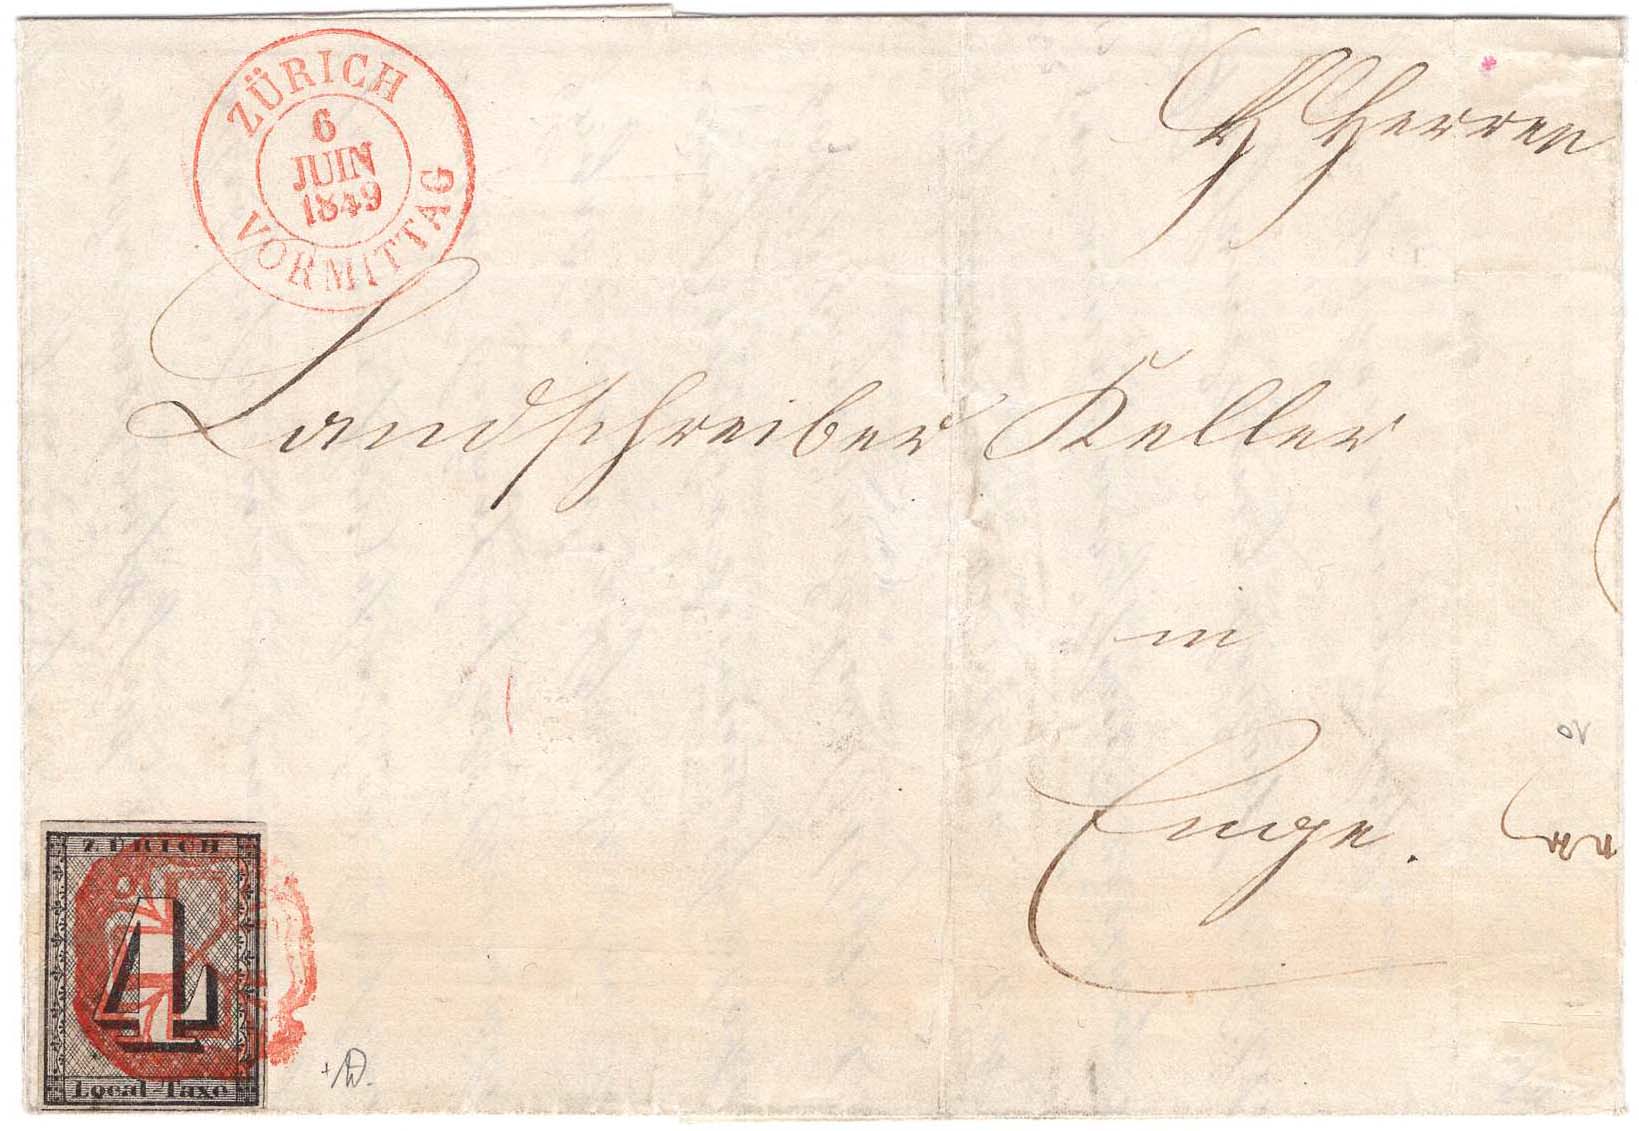 ZÜRICH
6
JUIN
1849
VORMITTAG
H Herren
Landschreiber Keller
in
Enge.
ZÜRICH
4
Local-Taxe